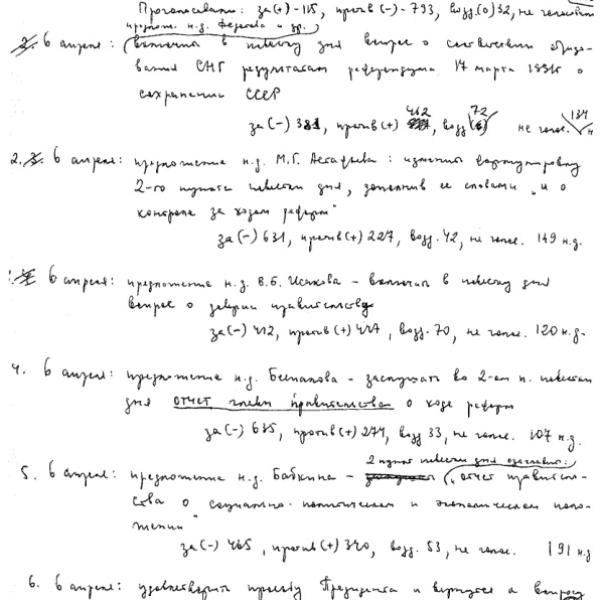 Проголосовали: за(+)-115, против(-)-793, возд.(0)32, не голосовали
предлож. н.д. Федосова и др.
2. 6 апреля: включить в повестку дня вопрос о соответствии образо-
вания СНГ результатам референдума 17 марта 1991г о
сохранении СССР
412 72 134
за(-) 381, против(+) возд не голос.
2. 3. 6 апреля: предложение н.д. М.Г. Астафьева: изменить формулировку
2-го пункта повестки дня, дополнив ее словами "и о
контроле за ходом реформ"
за(-) 631, против(+) 227, возд. 42, не голос. 149 н.д.
6 апреля: предложение н.д. В.Б. Исакова - включить в повестку дня
вопрос о доверии правительству
за(-) 412, против(+) 447, возд. 70, не голос. 120 н.д.
4. 6 апреля: предложение н.д. Беспалова - заслушать во 2-ом п. повестки
дня отчет главы правительства о ходе реформ
за(-) 635, против(+) 274, возд 33, не голос. 107 н.д.
2 пункт повестки дня озаглавить:
5. 6 апреля: предложение н.д. Бабкина - "отчет правитель-
ства о социально-политическом и экономическом поло-
жении"
за(-) 465, против(+) 340, возд. 53, не голос. 191 н.д
6. 6 апреля: удовлетворить просьбу Президента и вернуться к вопросу